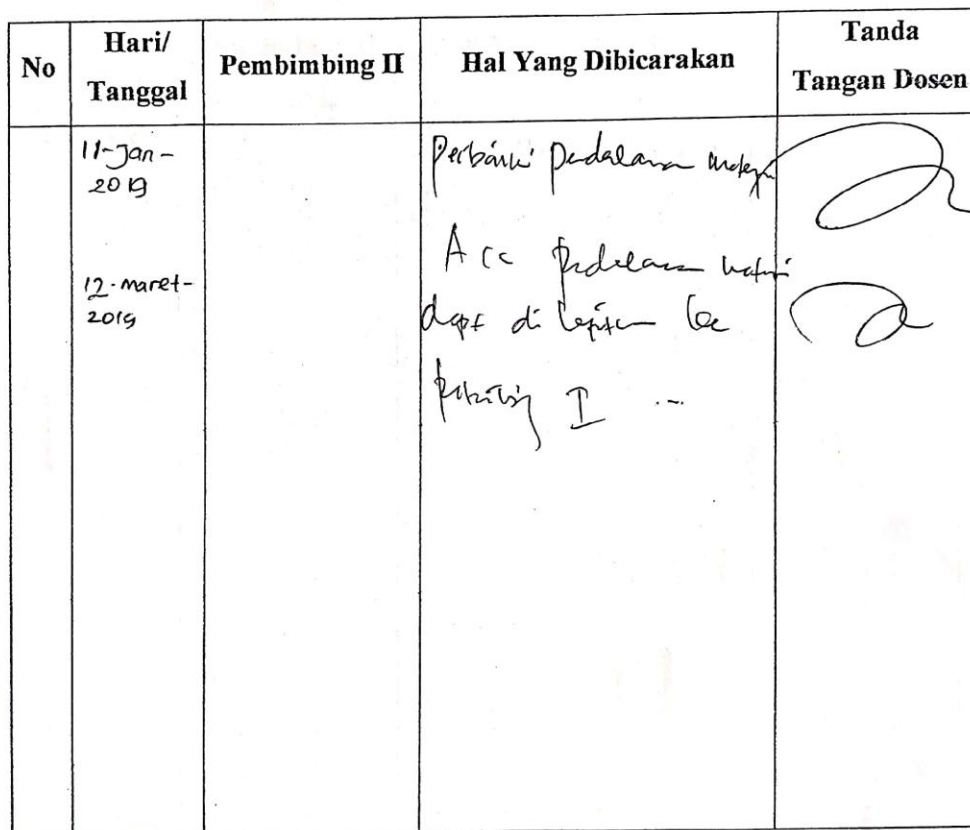 No Hari/ Tanggal Pembimbing II Hal Yang Dibicarakan Tanda Tangan Dosen
11-Jan-
2019
Perbaiki Pendalaman materi
12-maret-
2019
Acc Pendalaman materi
dapt di lanjutkan ke
Pembimbing I ...